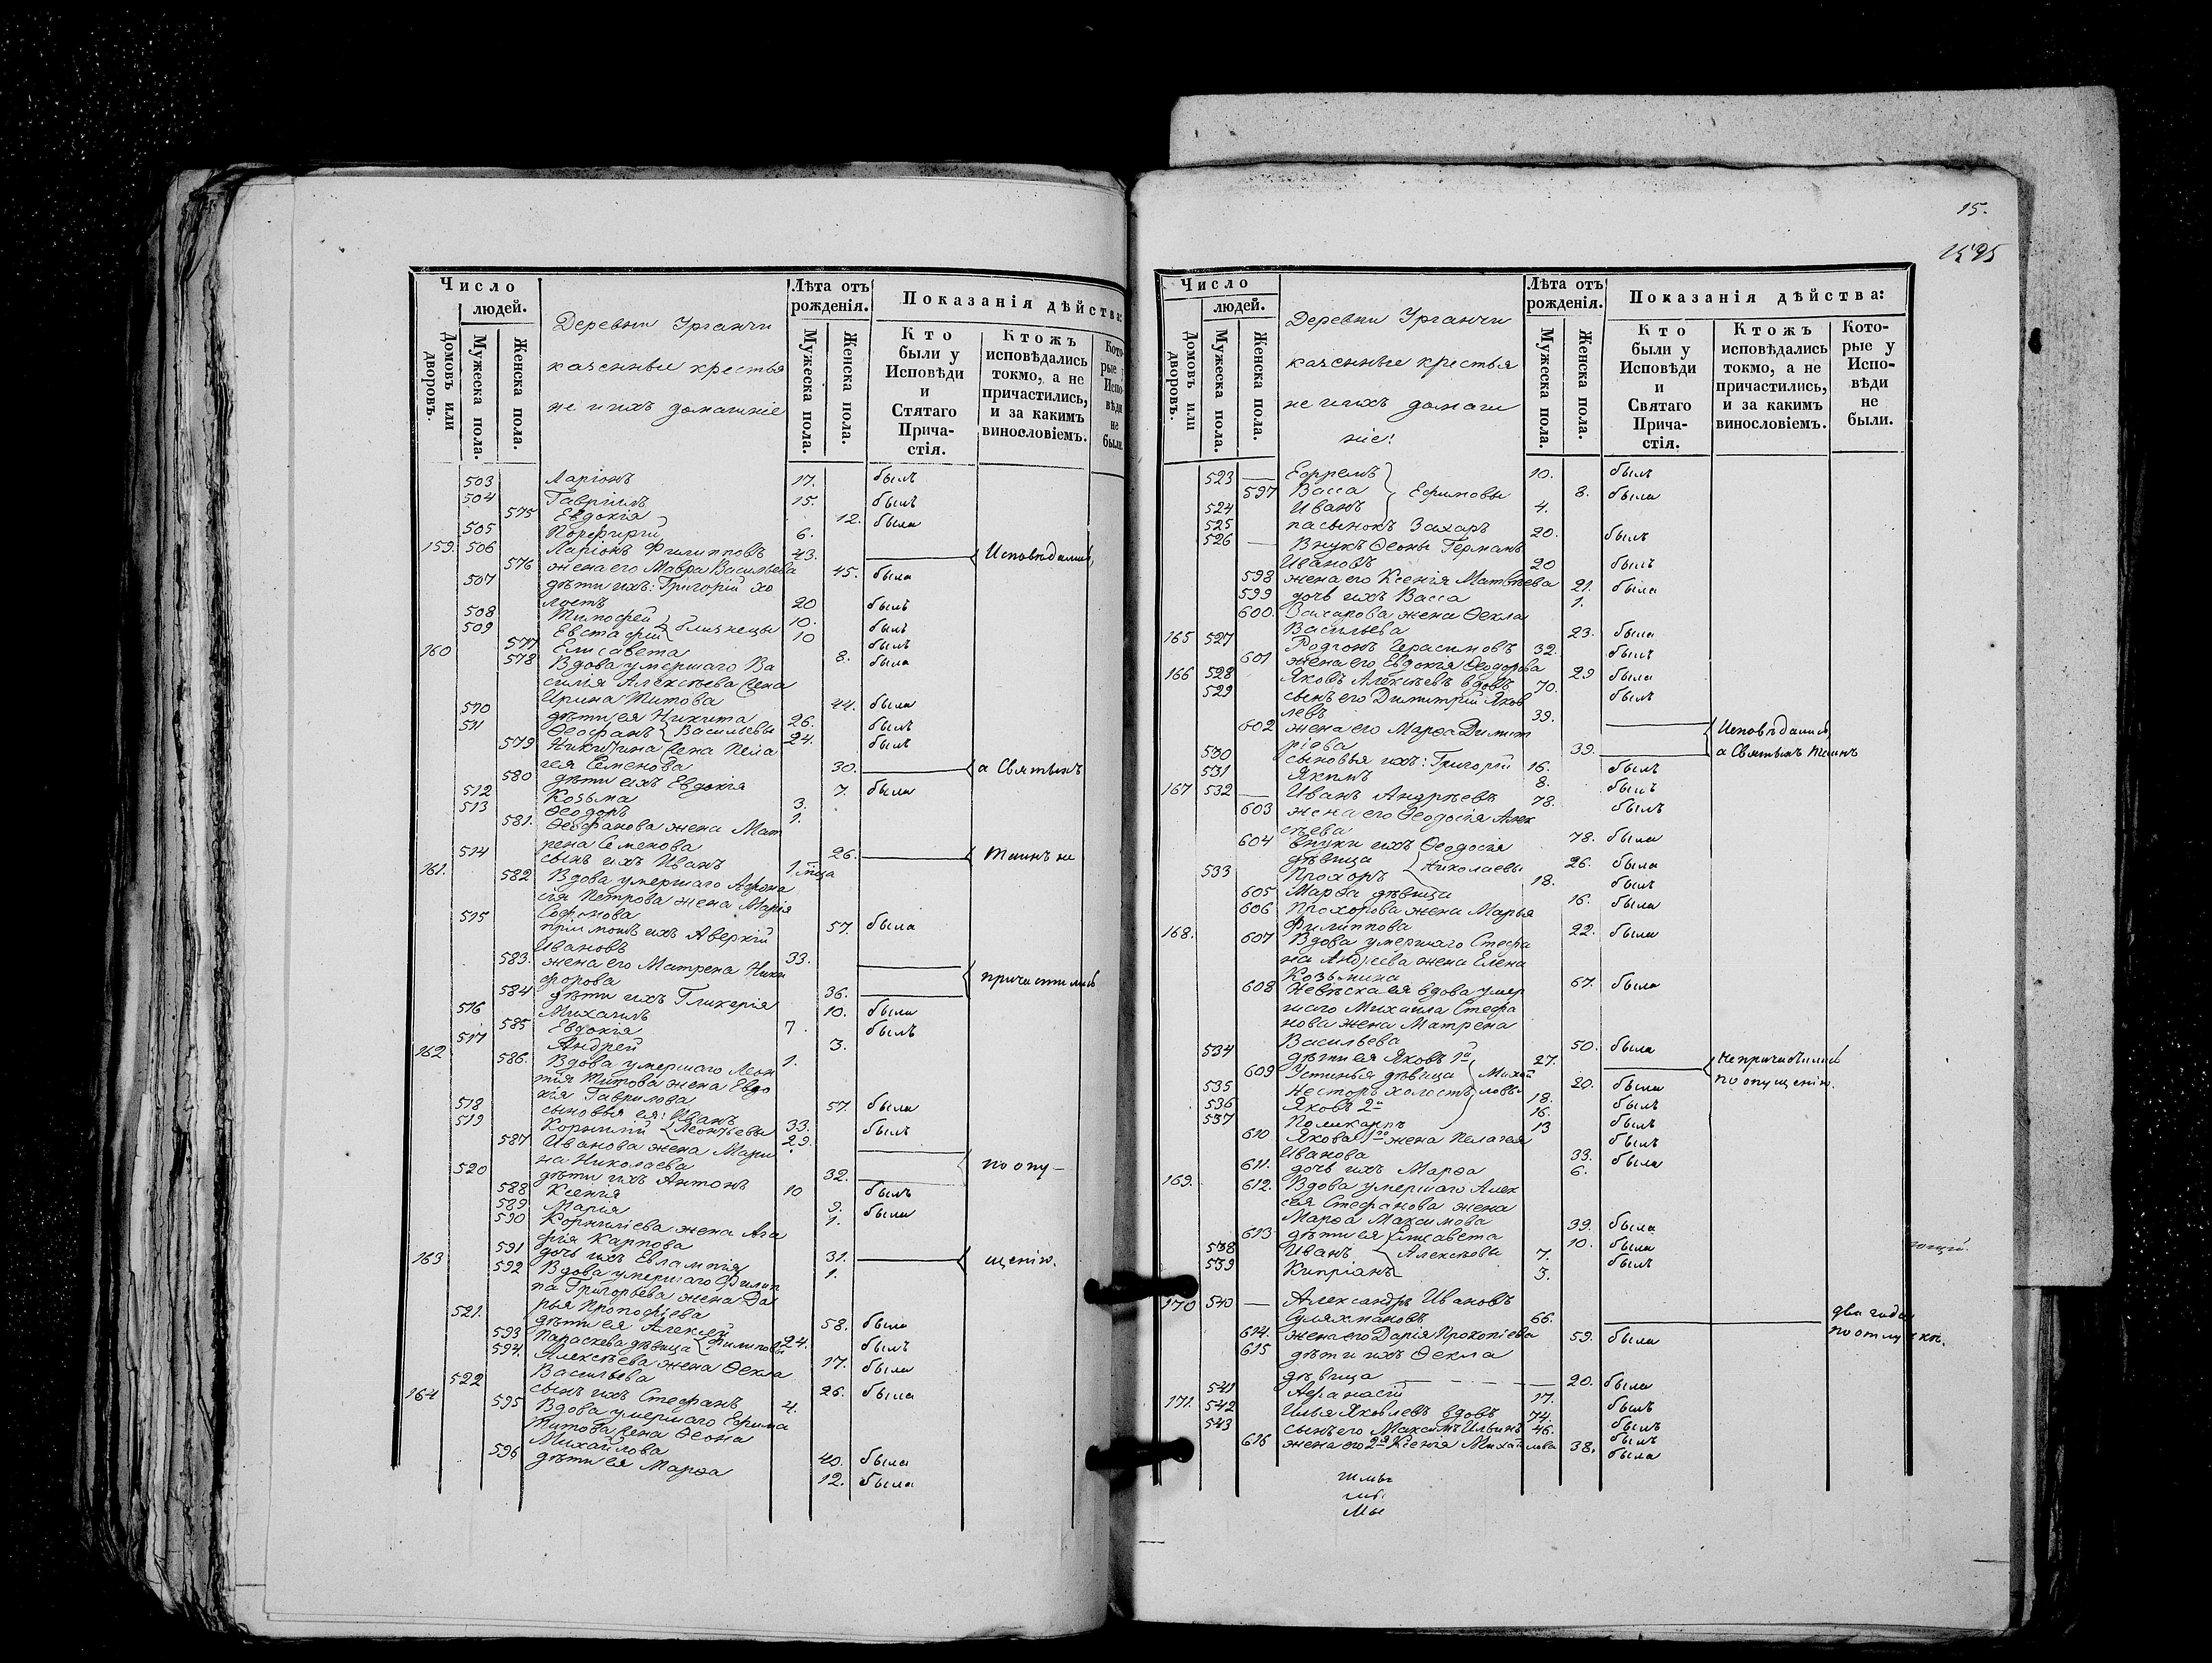 Число
людей.
Домовъ или дворовъ.
Мужеска пола.
Женска пола.
Деревни Урганчи
казенные крестья
не и ихъ домашніе
Лѣта отъ рожденія.
Мужеска пола.
Женска пола.
Показанія дѣйства:
Кто были у Исповѣди и Стятаго Прича-стія.
Ктожъ исповѣдались токмо, а не причастились, и за какимъ винословіемъ.
Кото- рые у Испо- вѣди не были.
503 Ларіонъ 17. былъ
504 Гавріилъ 15. былъ
575 Евдокія 12. была
505 Порфирій 6.
159. 506 Ларіонъ Филипповъ 43. Исповѣдались,
576 жена его Мавра Васильева 45. была
507 дѣти ихъ: Григорій хо
лостъ 20 былъ
508 Тимофей 10. былъ
509 Евстафій близнецы 10 былъ
577 Елисавета 8. была
160 578 Вдова умершаго Ва
силія Алексѣева жена
Ирина Титова 44. была
510 дѣти ея Никита 26. былъ
511 Ѳеофанъ Васильевы 24. былъ
579 Никитина жена Пела
гея Семенова 30. а Святыхъ
580 дѣти ихъ Евдокія 7. была
512 Козьма 3.
513 Ѳеодоръ 1.
581. Ѳеофанова жена Мат
рена Семенова 26. Таинъ не
514 сынъ ихъ Иванъ 1 мца
161. 582 Вдова умершаго Афона
сія Петрова жена Марія
Софонова 57. была
515 пріимошъ ихъ Аверкій
Ивановъ 33.
583. жена его Матрена Ники
форова 36. причастились
584 дѣти ихъ Гликерія 10. была
516 Михаилъ 7. былъ
585 Евдокія 3.
517 Андрей 1.
162 586. Вдова умершаго Леон
тія Титова жена Евдо
кія Гаврилова 57. была
518 сыновья ея: Иванъ 33. былъ
519 Корнилій Леонтьевы 29.
587 Иванова жена Мари
на Николаева 32. по опу-
520 дѣти ихъ Антонъ 10 былъ
588 Ксенія 9. была
589 Марія 1.
590 Корниліева жена Ага
фія Карпова 31. щенію.
591 дочь ихъ Евлампія 1.
163 592 Вдова умершаго Филип
па Григорьева жена Да
рья Прокофіева 58. была
521. дѣти ея Алексѣй 24. былъ
593 Параскева дѣвица Филиповы 17. была
594. Алексѣева жена Ѳекла
Васильева 26. была
522 сынъ ихъ Стефанъ 4.
164 595 Вдова умершаго Ефима
Титова жена Ѳеона
Михайлова 40. была
596 дѣти ея Марѳа 12. была
15.
1595
Число
людей.
Домовъ или дворовъ.
Мужеска пола.
Женска пола.
Деревни Урганчи
казенные крестья
не и ихъ домаш
ніе:
Лѣта отъ рожденія.
Мужеска пола.
Женска пола.
Показанія дѣйства:
Кто были у Исповѣди и Святаго Прича-стія.
Ктожъ исповѣдались токмо, а не причастились, и за какимъ винословіемъ.
Кото-рые у Испо-вѣди не были.
523 Ефремъ 10. былъ
597 Васса Ефимовы 8. была
524 Иванъ 4.
525 пасынокъ Захаръ 20. былъ
526 Внукъ Ѳеоны Германъ
Ивановъ 20 былъ
598 жена его Ксенія Матвѣева 21. была
599 дочь ихъ Васса 1.
600. Захарова жена Ѳекла
Васильева 23. была
165 527 Родіонъ Герасимовъ 32. былъ
601 жена его Евдокія Ѳеодорова 29 была
166 528 Яковъ Алексѣевъ вдовъ 70. былъ
529 сынъ его Димитрій Яков
левъ 39. Исповѣдались,
602 жена его Марѳа Димит
ріева 39. а Святыхъ Таинъ
530 сыновья ихъ: Григорій 16. былъ
531 Якимъ 8. былъ
167 532 Иванъ Андрѣевъ 78. былъ
603 жена его Ѳеодосія Алек
сѣева 78. была
604 Внуки ихъ Ѳеодосія
дѣвица Николаевы 26. была
533 Прохоръ 18. былъ
605 Марѳа дѣвица 16. была
606 Прохорова жена Марья
Филиппова 22. была
168. 607 Вдова умершаго Стефа
на Андреева жена Елена
Козьмина 67. была
608 Невѣска ея вдова умер
шаго Михаила Стефа
нова жена Матрена
Васильева 50. была
534 дѣти ея Яковъ 1й 27. не причастились
609 Устинья дѣвица Михай 20. была по опущенію.
535 Несторъ холостъ ловы 18. былъ
536 Яковъ 2й 16. былъ
537 Поликарпъ 13 былъ
610 Якова 1го жена Пелагея
Иванова 33. была
611. дочь ихъ Марѳа 6.
169. 612. Вдова умершаго Алек
сея Стефанова жена
Марѳа Максимова 39. была
613 дѣти ея Елисавета 10. была
538 Иванъ Алексѣевы 7. былъ
539 Кипріанъ 3.
170 540 Александръ Ивановъ
Суляхмановъ 66. два года
614. жена его Дарія Прокопіева 59. была по отлучкѣ.
615 дѣти ихъ Ѳекла
дѣвица 20. была
541 Афанасій 17. былъ
171. 542 Илья Яковлевъ вдовъ 74. былъ
543 сынъ его Максимъ Ильинъ 46. былъ
616 жена его 2я Ксенія Михайлова 38. была